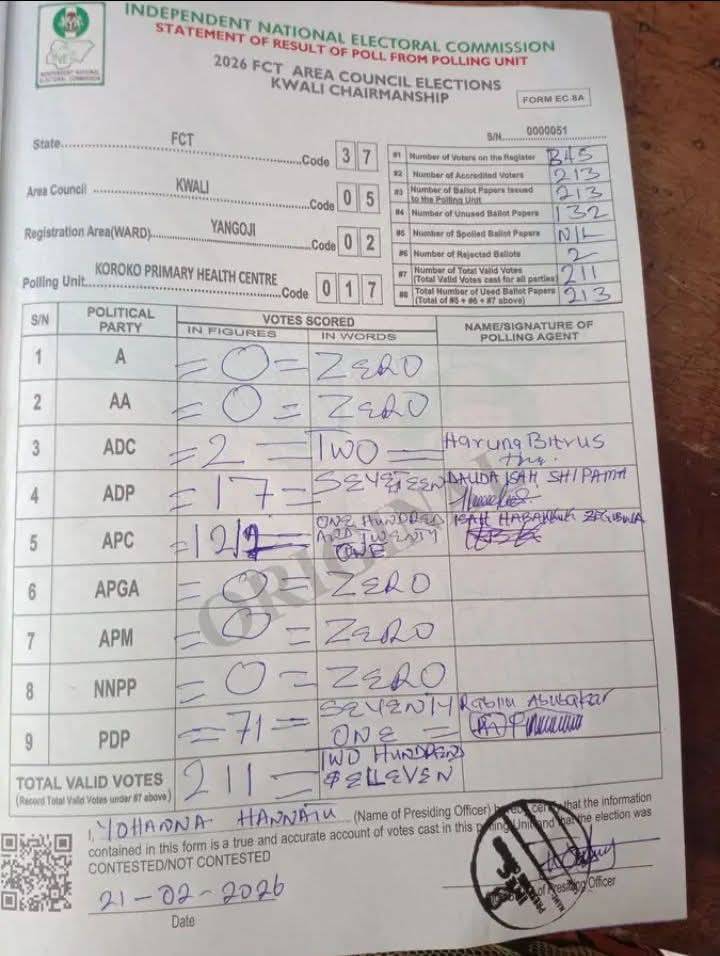 INDEPENDENT NATIONAL ELECTORAL COMMISSION
STATEMENT OF RESULT OF POLL FROM POLLING UNIT
2026 FCT AREA COUNCIL ELECTIONS
KWALI CHAIRMANSHIP
FORM EC 8A
S/N 0000051
State FCT Code 3 7
Area Council KWALI Code 0 5
Registration Area(WARD) YANGOJI Code 0 2
Polling Unit KOROKO PRIMARY HEALTH CENTRE Code 0 1 7
#1 Number of Voters on the Register 345
#2 Number of Accredited Voters 213
#3 Number of Ballot Papers Issued to the Polling Unit 213
#4 Number of Unused Ballot Papers 132
#5 Number of Spoiled Ballot Papers NIL
#6 Number of Rejected Ballots 2
#7 Number of Total Valid Votes (Total Valid Votes cast for all parties) 211
#8 Total Number of Used Ballot Papers (Total of #5 + #6 + #7 above) 213
S/N POLITICAL PARTY VOTES SCORED NAME/SIGNATURE OF POLLING AGENT
IN FIGURES IN WORDS
1 A =0= ZERO
2 AA =0= ZERO
3 ADC =2= TWO = Haruna Bitrus
4 ADP =17= SEVETEEN DAUDA ISAH SHIPAMA
5 APC =121= ONE HUNDRED AND TWENTY ONE ISAH HABAKKUK
6 APGA =0= ZERO
7 APM =0= ZERO
8 NNPP =0= ZERO
9 PDP =71= SEVENTY ONE = Rabiu Abubakar
TOTAL VALID VOTES 211= TWO HUNDRED & ELEVEN
(Record Total Valid Votes under #7 above)
ORIGINAL
I, YOHANNA HANNATU (Name of Presiding Officer) hereby certify that the information
contained in this form is a true and accurate account of votes cast in this polling Unit and that the election was
CONTESTED/NOT CONTESTED
21-02-2026
Date
of Presiding Officer